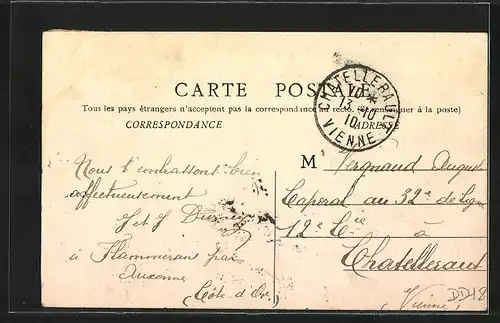 CARTE POSTALE
Tous les pays étrangers n'acceptent pas la correspondance au recto. (Se renseigner à la poste)
CORRESPONDANCE
ADRESSE
CHATELLERAULT
10 *
13-10
10
VIENNE
Nous t'embrassons bien
affectueusement
J et J
à Flammerans par
Auxonne
(Côte d'Or)
M Vergnaud August
Caporal au 32e de Ligne
12e Cie à
Chatelleraut
(Vienne)
DD48